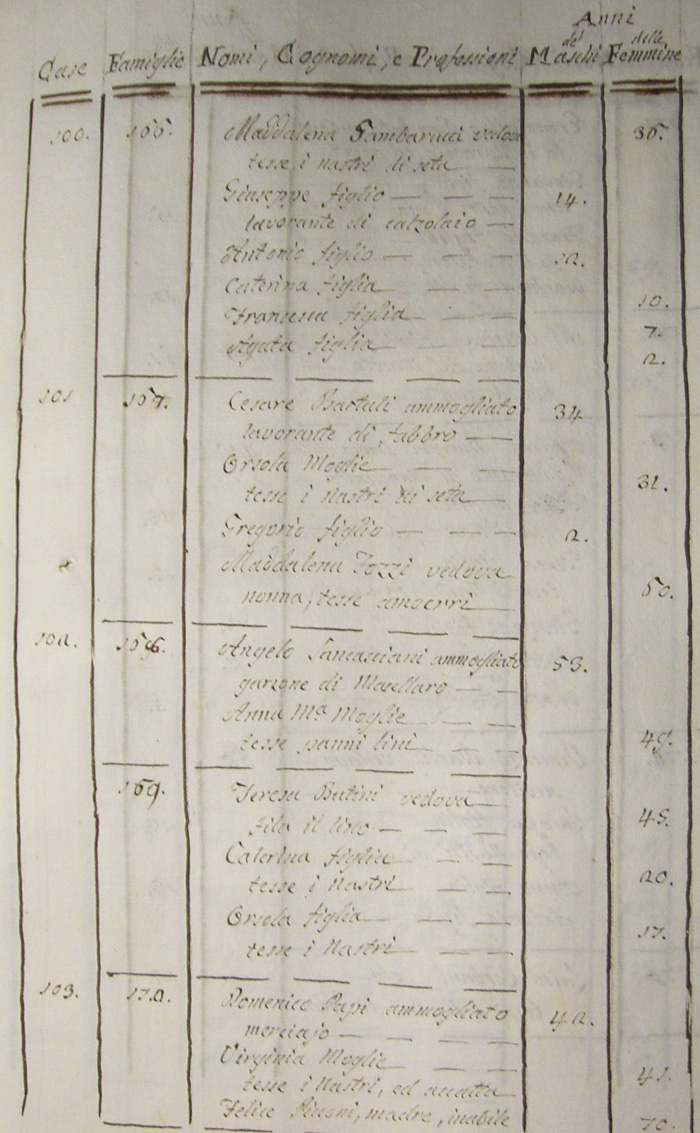 Anni
Case Famiglie Nomi, Cognomi, e Professioni de' Maschi delle Femmine
100. 166. Maddalena Gambaracci vedova 36.
tesse i nastri di seta
Giuseppe figlio 14.
lavorante di calzolaio
Antonio figlio 12.
Caterina figlia 10.
Francesca figlia 7.
Agata figlia 2.
101 167. Cesare Bartuli ammogliato 34
lavorante di fabbro
Orsola Moglie 31.
tesse i nastri di seta
Gregorio figlio 2.
Maddalena Tozzi vedova 50.
nonna, tesse amoerri
102. 168. Angelo Sancasciani ammogliato 53.
garzone di Macellaro
Anna Mª Moglie 49.
tesse panni lini
169. Teresa Butini vedova 45.
fila il lino
Caterina figlia 20.
tesse i Nastri
Orsola figlia 17.
tesse i Nastri
103. 170. Domenico Papi ammogliato 42.
merciajo
Virginia Moglie 41.
tesse i Nastri, ed accatta
Felice madre, inabile 70.